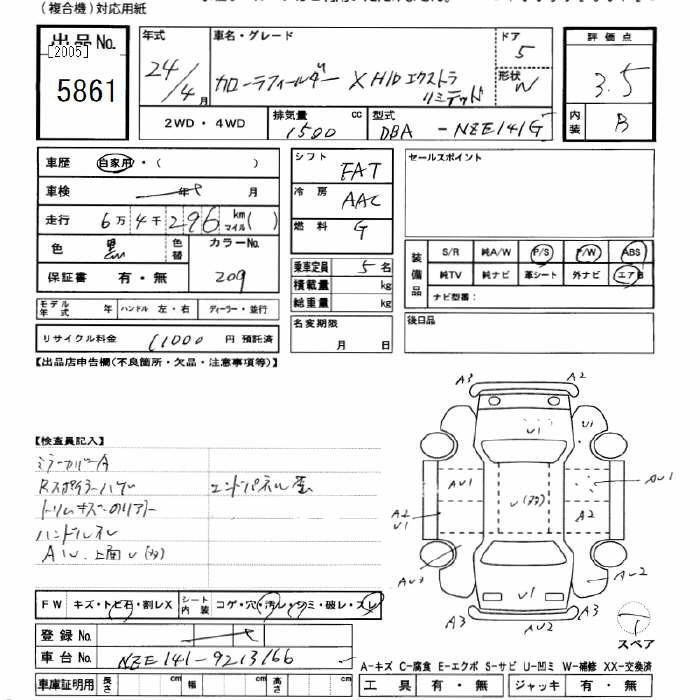 (複合機)対応用紙
出品No.
[2005]
5861
年式
24/4月
車名・グレード
カローラフィールダー X HIDエクストラ
リミテッド
ドア
5
形状
W
評価点
3.5
2WD・4WD
排気量
1500 cc
型式
DBA -NZE141G
内装
B
車歴 自家用・( )
車検 年 月
走行 6万4千296km マイル( )
色 黒 色替 カラーNo.
209
保証書 有・無
モデル年式 年 ハンドル 左・右 ディーラー・並行
リサイクル料金 11000 円 預託済
シフト FAT
冷房 AAC
燃料 G
乗車定員 5名
積載量 kg
総重量 kg
名変期限
月 日
セールスポイント
装備品
S/R 純A/W P/S P/W ABS
純TV 純ナビ 革シート 外ナビ エアB
ナビ型番:
後日品
【出品店申告欄(不良箇所・欠品・注意事項等)】
【検査員記入】
ミラーカバーA
Rスポイラーハゲ エンドパネル歪
トリムキズ
ハンドルスレ
A U 上面U(多)
A3 A2
U1 U1
AU1 U(多) AU1
A2 U1 A2
AU3 AU2
U1
A3 AU2 A3
スペア
FW キズ・トビ石・割レX シート内装 コゲ・穴・汚レ・シミ・破レ・スレ
登録No.
車台No. NZE141-9213166
車庫証明用 長さ cm 幅 cm 高さ cm
A-キズ C-腐食 E-エクボ S-サビ U-凹ミ W-補修 XX-交換済
工具 有・無 ジャッキ 有・無